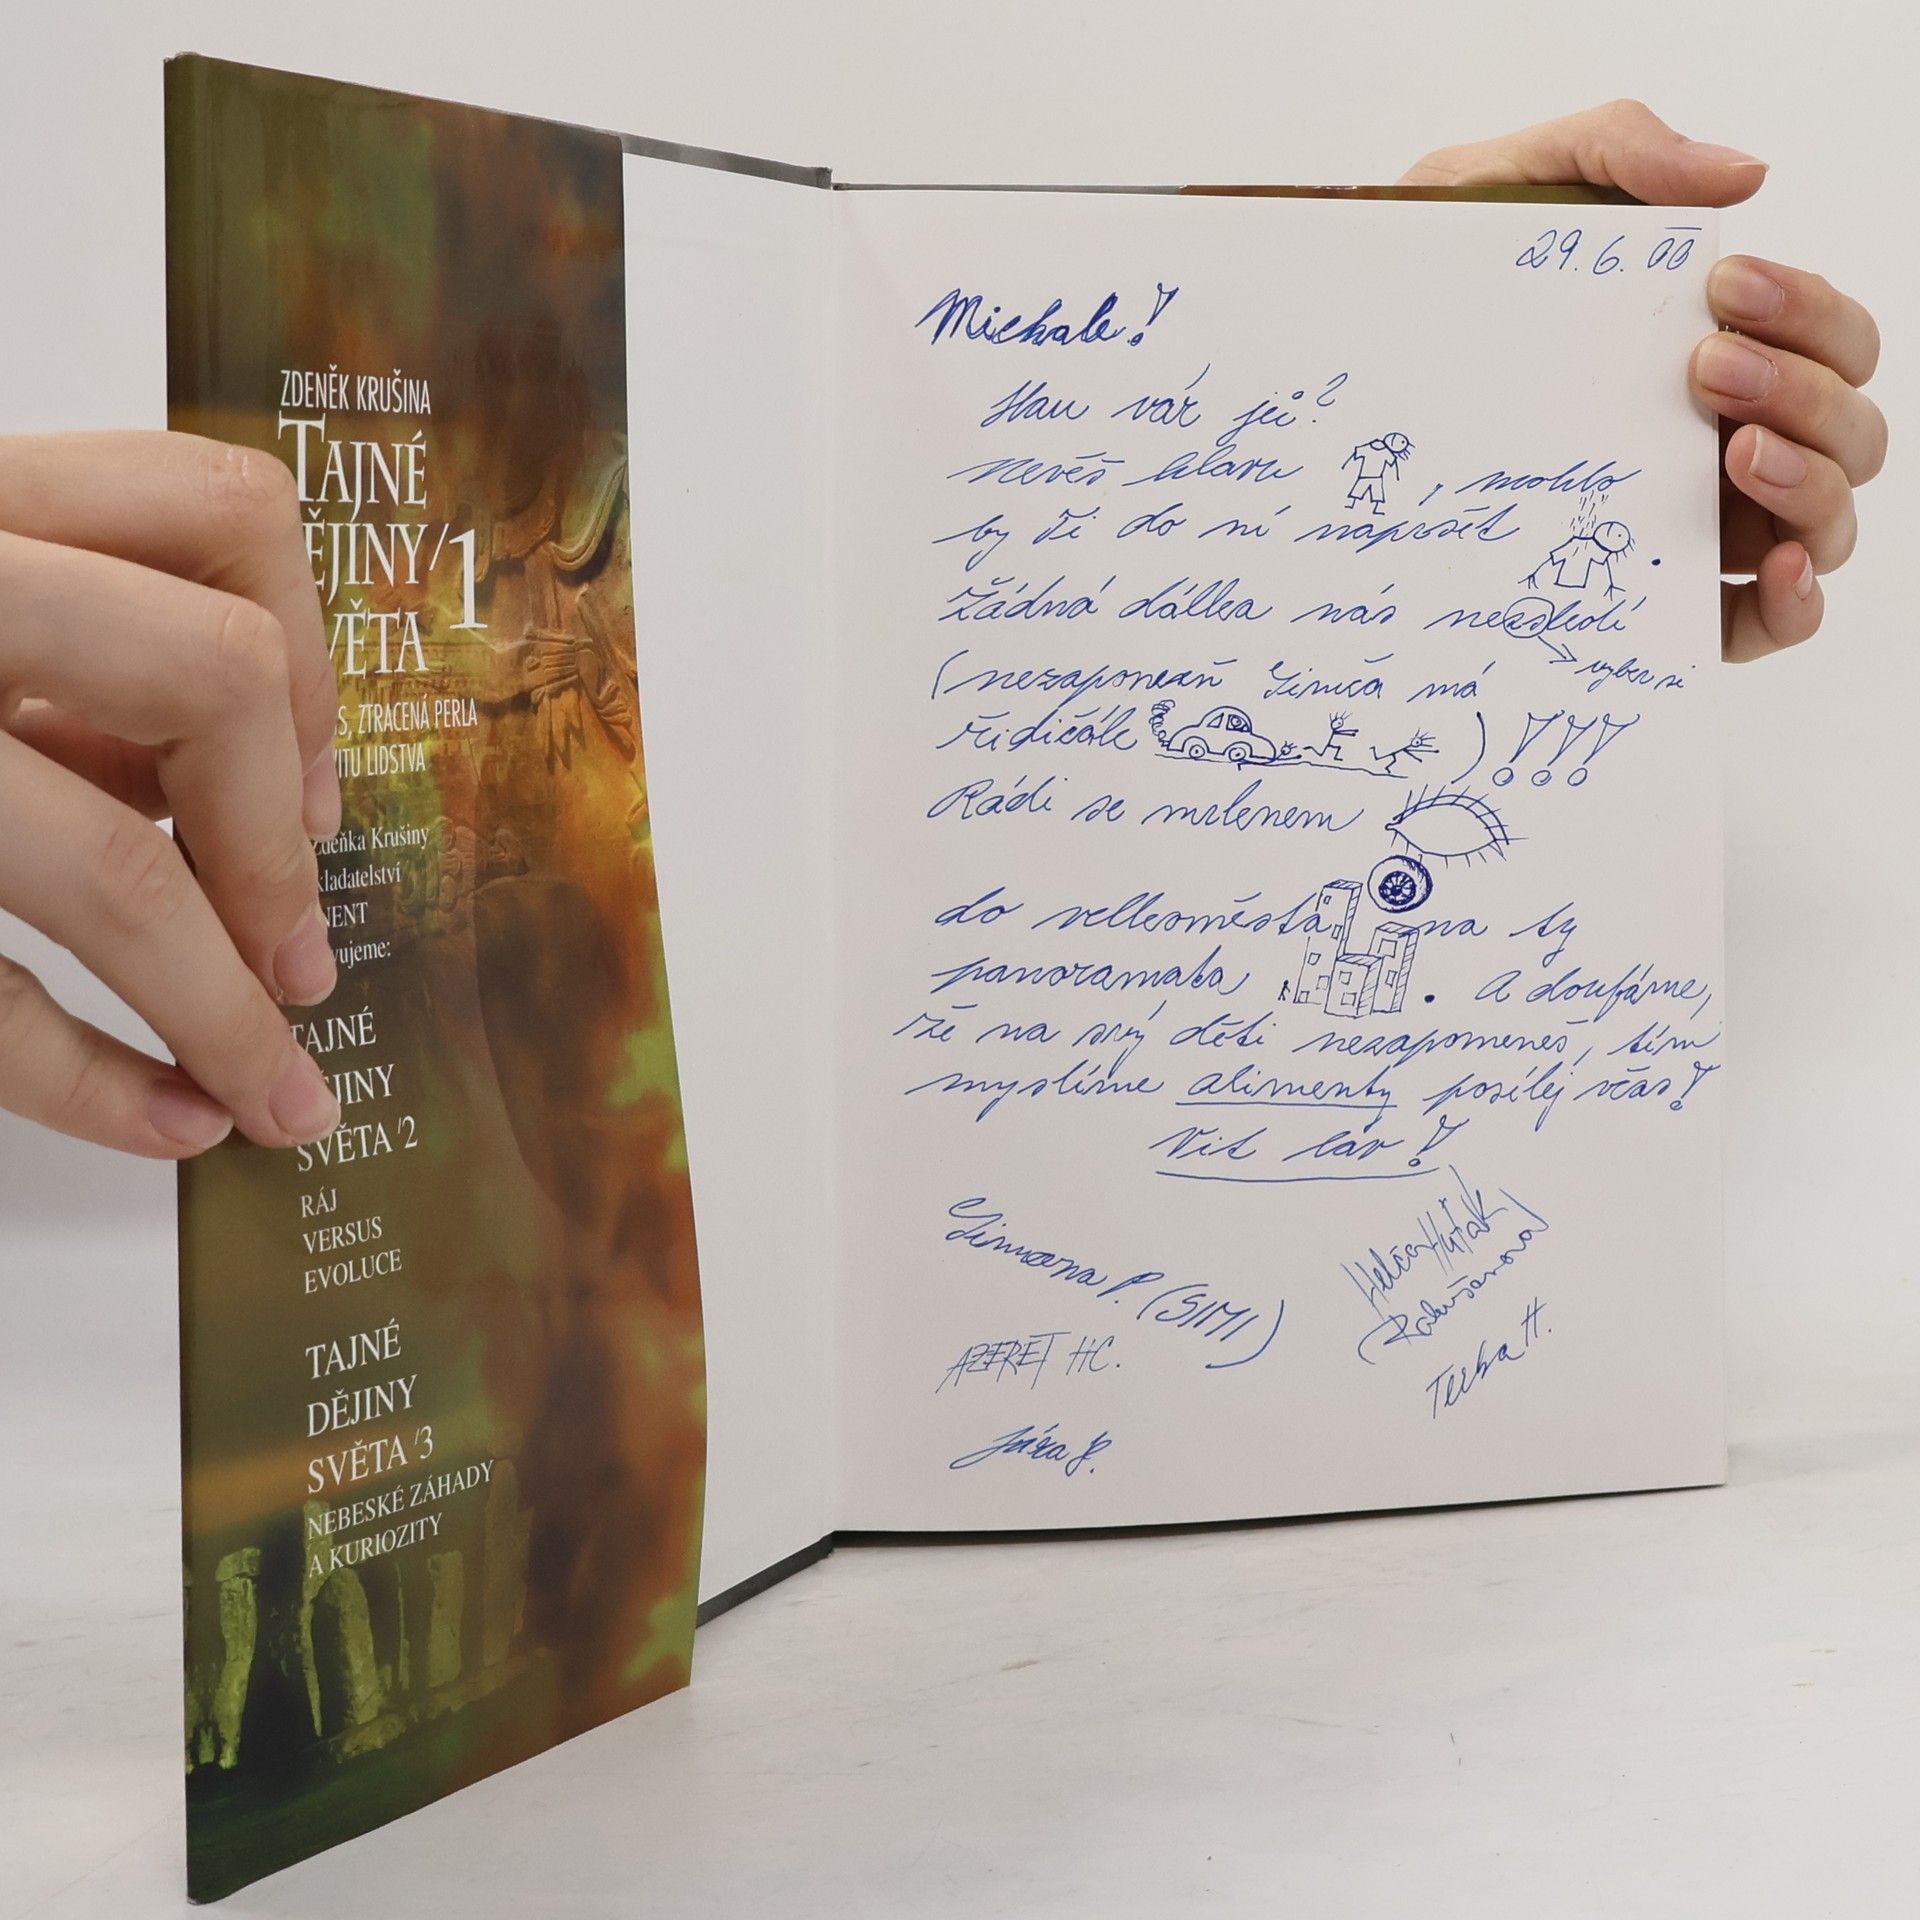 ZDENĚK KRUŠINA
TAJNÉ
ĚJINY/1
VĚTA
S, ZTRACENÁ PERLA
VITU LIDSTVA
Zdeňka Krušiny
kladatelství
NENT
vujeme:
TAJNÉ
JINY
SVĚTA /2
RÁJ
VERSUS
EVOLUCE
TAJNÉ
DĚJINY
SVĚTA /3
NEBESKÉ ZÁHADY
A KURIOZITY
29. 6. 00
Michale!
Hau vár jů?
nevěš hlavu , mohlo
by Ti do ní napršet .
Žádná dálka nás
vyber si
(nezapomeň Simča má
řidičák )!!!
Rádi se mrknem
do velkoměsta na ty
panoramata . A doufáme,
že na svý děti nezapomeneš, tím
myslíme alimenty posílej včas!
Vit láv!
Simoona P. (SIMI)
Helča Huťák
AZERET HC.
Terka H.